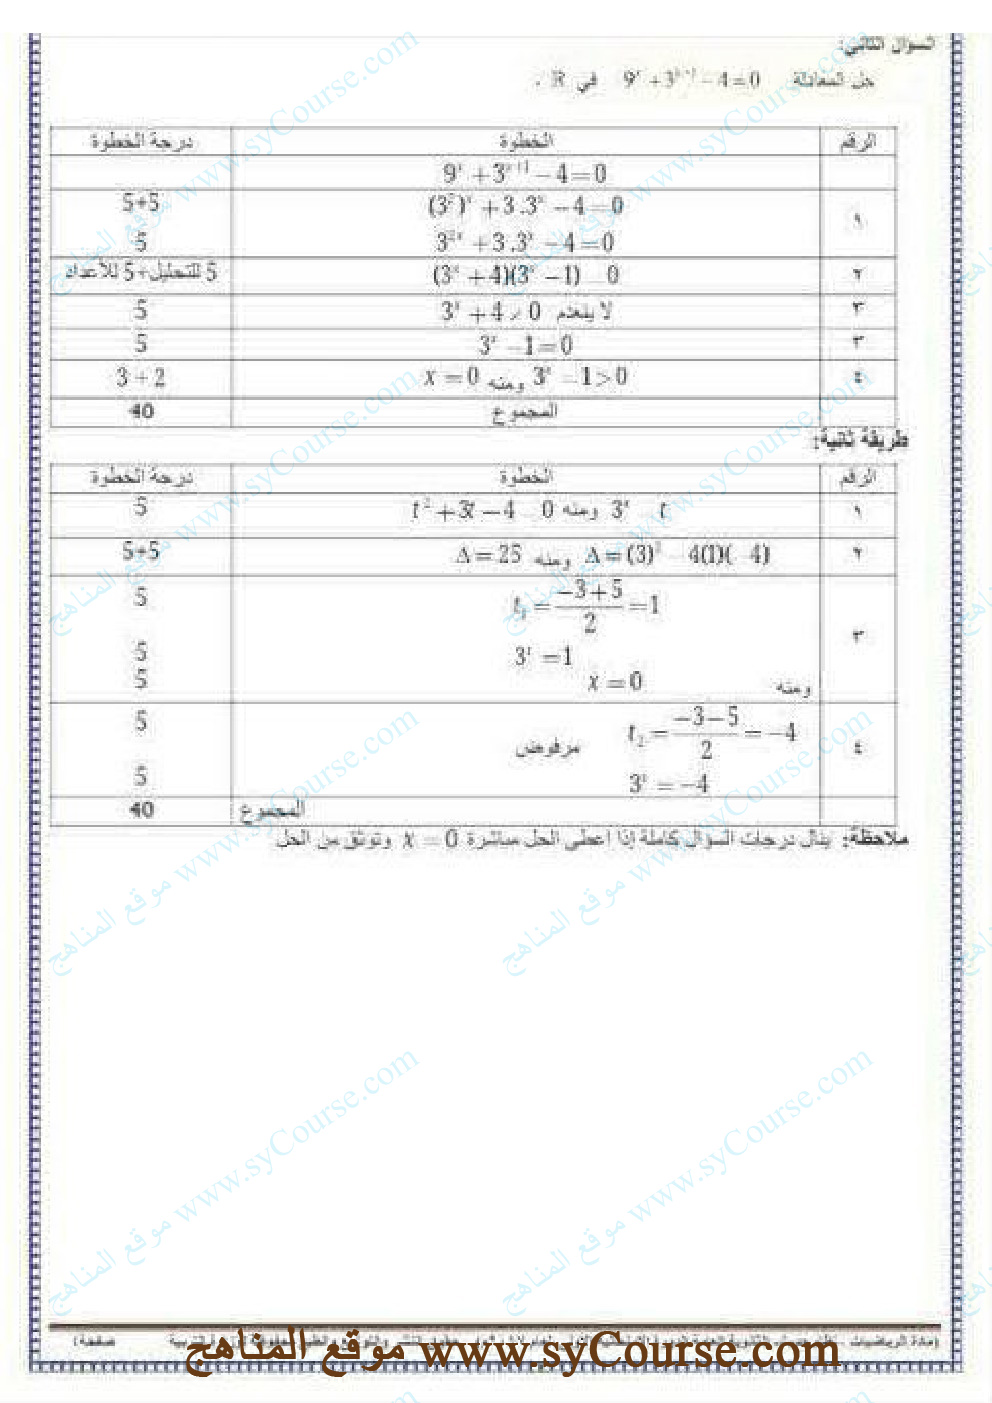 السؤال الثاني:
حل المعادلة 9ˣ + 3ˣ⁺¹ − 4 = 0 في ℝ .
الرقم الخطوة درجة الخطوة
9ˣ + 3ˣ⁺¹ − 4 = 0
١ (3²)ˣ + 3.3ˣ − 4 = 0 5+5
3²ˣ + 3.3ˣ − 4 = 0 5
٢ (3ˣ + 4)(3ˣ − 1) 0 5 للتحليل + 5 للأعداد
٣ 3ˣ + 4 0 لا ينعدم 5
٣ 3ˣ − 1 = 0 5
٤ 3ˣ − 1 > 0 ومنه x = 0 3 + 2
المجموع 40
طريقة ثانية:
الرقم الخطوة درجة الخطوة
١ 3ˣ t ومنه t² + 3t − 4 0 5
٢ Δ = (3)² 4(1)( 4) ومنه Δ = 25 5+5
٣ t₁ = (−3+5)/2 = 1 5
3ˣ = 1 5
ومنه x = 0 5
٤ t₂ = (−3−5)/2 = −4 مرفوض 5
3ˣ = −4 5
المجموع 40
ملاحظة: ينال درجات السؤال كاملة إذا أعطى الحل مباشرة x = 0 وتوثق من الحل
موقع المناهج www.syCourse.com